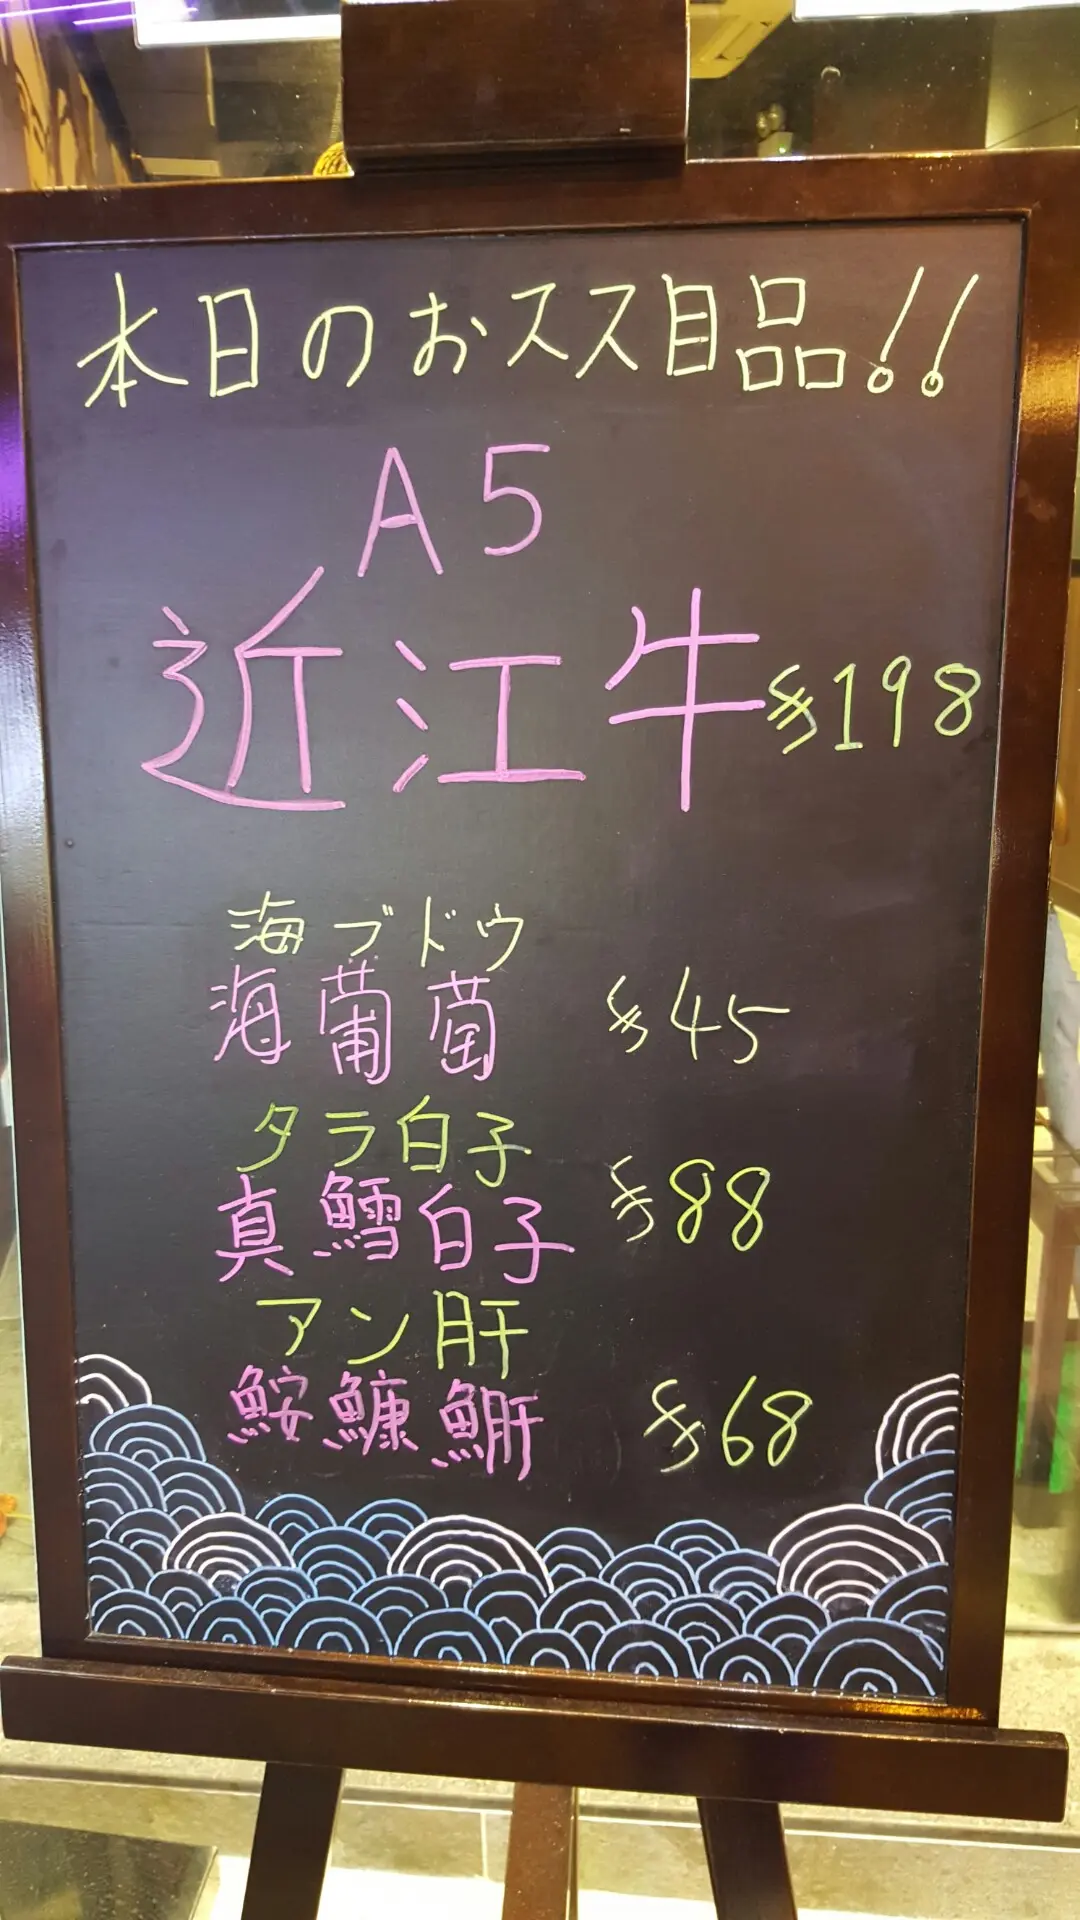 本日のおスス目品!!
A5
近江牛 $198
海ブドウ
海葡萄 $45
タラ白子
真鱈白子 $88
アン肝
鮟鱇 $68